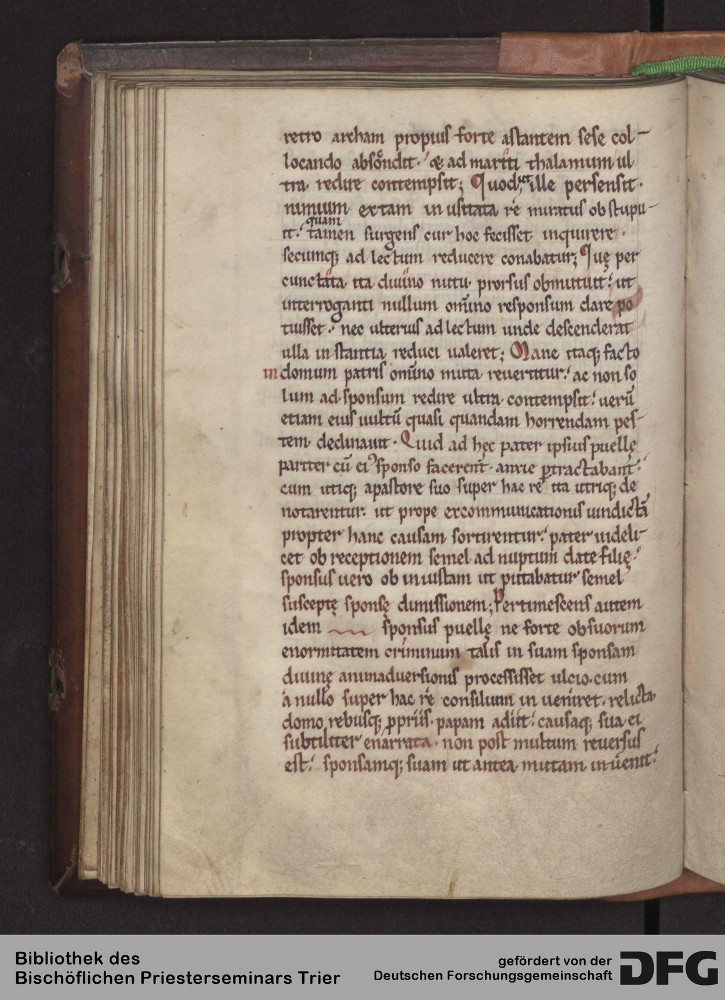 retro archam propius forte astantem sese col-
locando absc̄ondit. & ad mariti thalamum ul
tra redire contempsit; Quod ut ille persensit.
nimium ex tam inusitata rē miratus obstupu-
it. quam tamen surgens cur hoc fecisset inquirere.
secumq; ad lectum reducere conabatur; Quę per
cunctata ita diuino nutu prorsus obmutuit. ut
interroganti nullum om̄ino responsum dare po
tuisset. nec ulterius ad lectum unde descenderat
ulla instantia reduci ualeret; Mane itaq; facto
in domum patris om̄ino muta reuertitur. ac non so
lum ad sponsum redire ultra contempsit. uerū
etiam eius uultū quasi quandam horrendam pes-
tem declinauit. Quid ad hęc pater ipsius puellę
pariter cū ei' sponso facerent. anxie ptractabant.
cum utiq; a pastore suo super hac re ita utriq; de
notarentur. ut prope excommunicationis uindictā
propter hanc causam sortirentur. pater uideli-
cet ob receptionem semel ad nuptum datę filię.
sponsus uero ob iniustam ut putabatur semel
susceptę sponsę dimissionem; Pertimescens autem
idem sponsus puellę ne forte ob suorum
enormitatem criminum talis in suam sponsam
diuinę animaduersionis processisset ulcio. cum
a nullo super hac re consilium inueniret. relicta
domo rebusq; ppriis. papam adiit. causaq; sua ei
subtiliter enarrata. non post multum reuersus
est. sponsamq; suam ut antea mutam inuenit.
Bibliothek des
Bischöflichen Priesterseminars Trier
gefördert von der
Deutschen Forschungsgemeinschaft
DFG